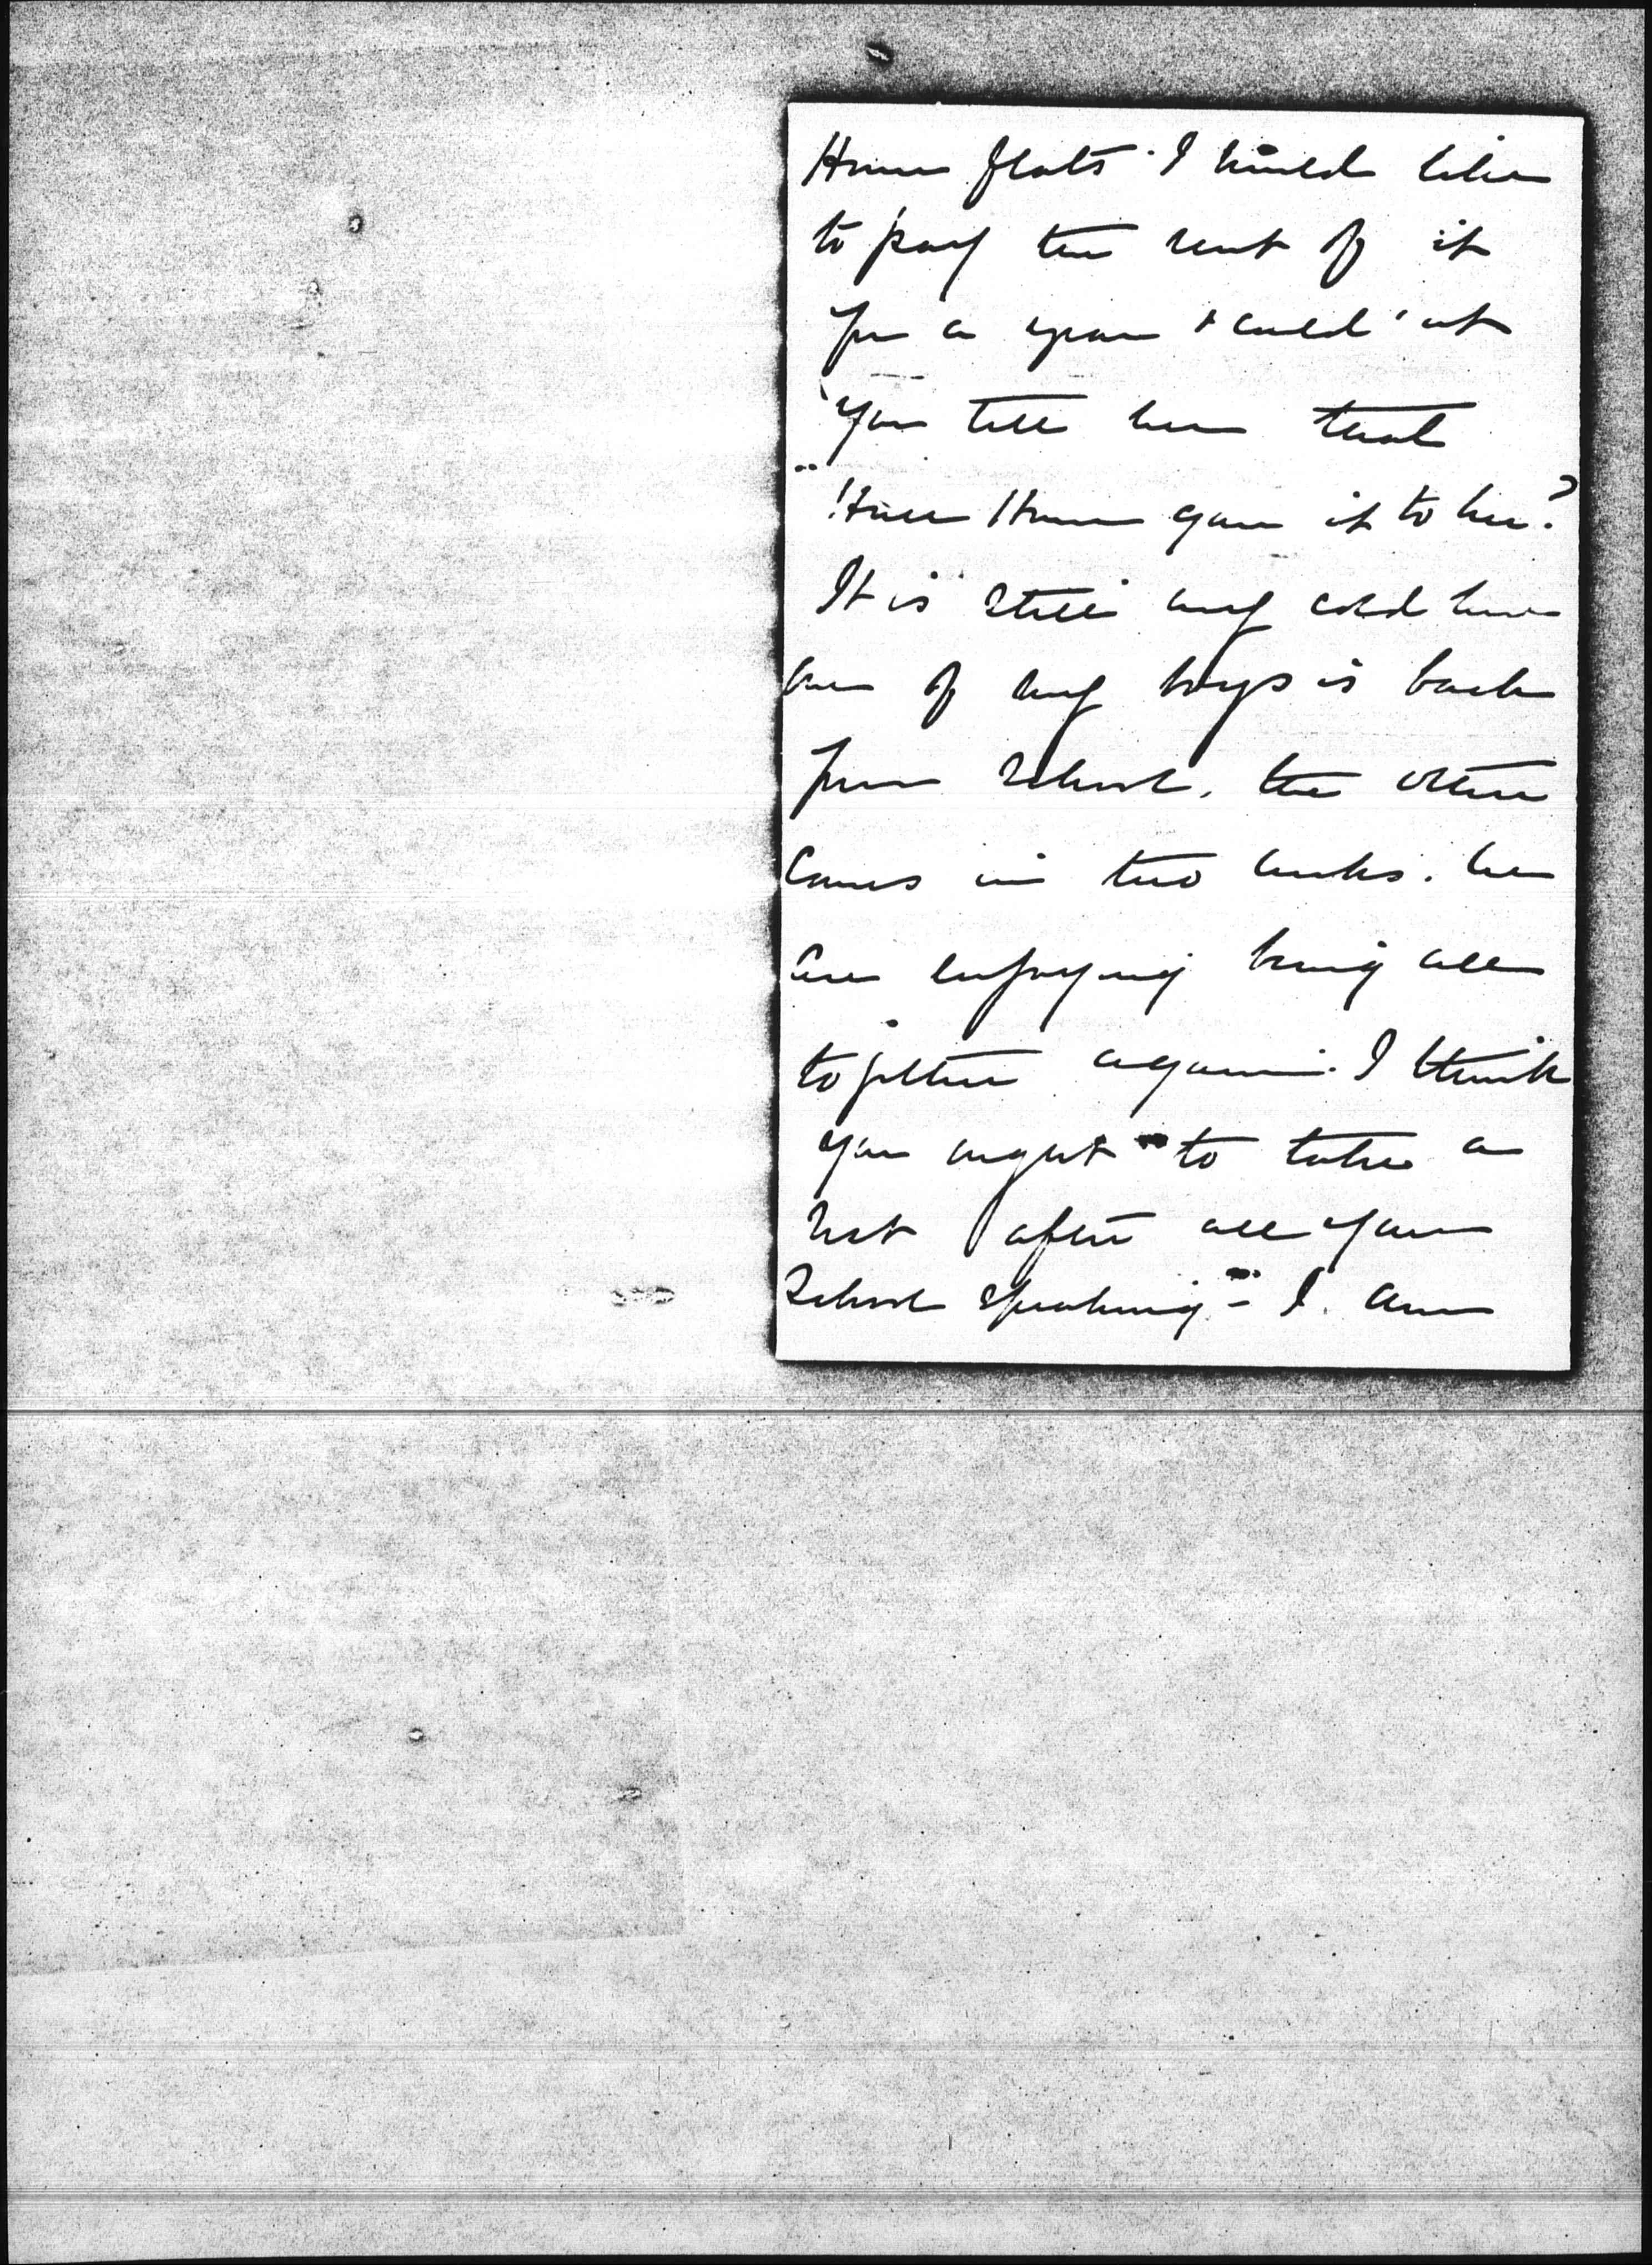 House flats. I would like
to pay the rent of it
for a year & could'nt
you tell her that
Hull House gave it to her?
It is still very cold here
one of my boys is back
from School. the other
comes in two weeks. we
are enjoying being all
together again. I think
you ought to take a
rest after all your
School speaking - I am